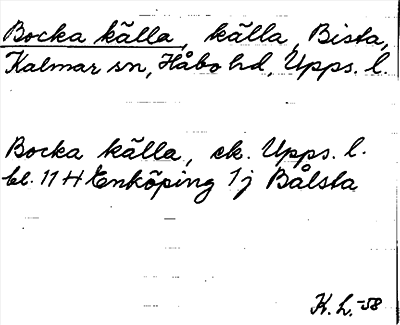 Bocka källa, källa, Bista,
Kalmar sn, Håbo hd, Upps. l.
Bocka källa, ek. Upps. l.
bl. 11 H Enköping 1j Bålsta
K. L. -58